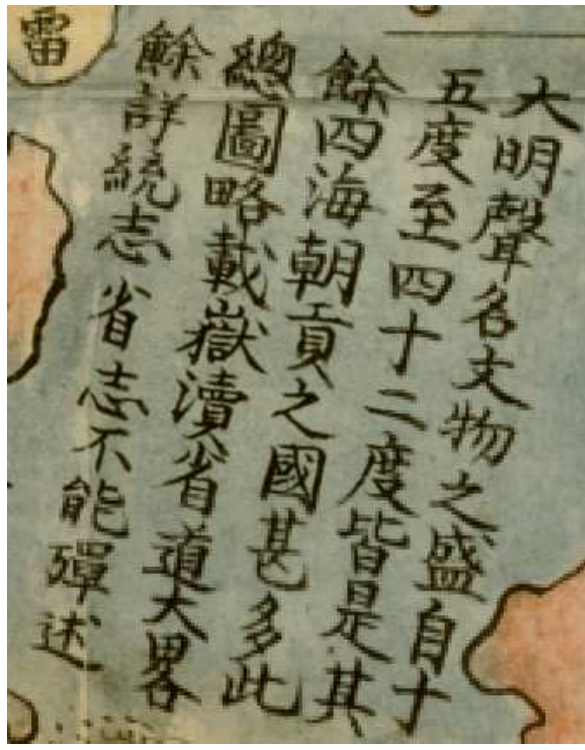 大明聲名文物之盛自十
五度至四十二度皆是其
餘四海朝貢之國甚多此
總圖略載嶽瀆省道大畧
餘詳統志省志不能殫述
雷